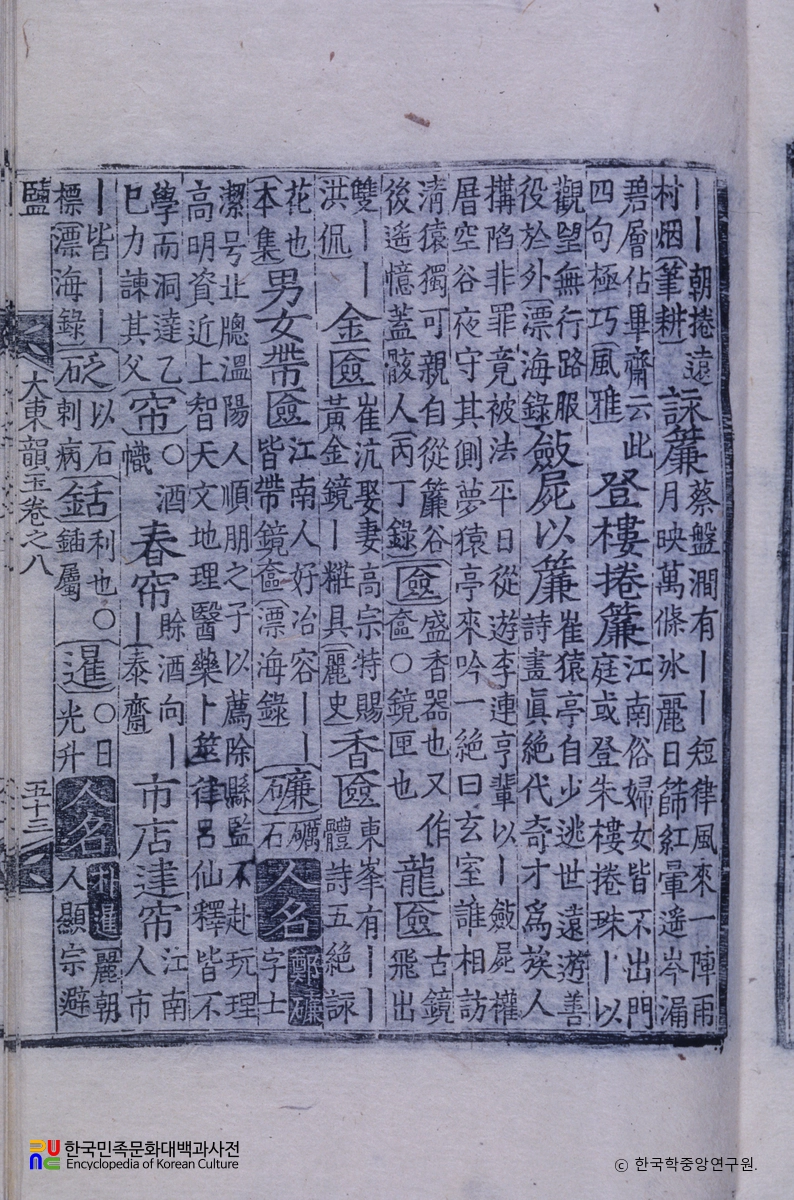 ｜｜朝捲遠
村烟(筆耕)
詠簾
蔡盤澗有｜｜短律風來一陣雨
月映萬條氷麗日篩紅暈遙岑漏
碧層佔畢齋云此
四句極巧(風雅
登樓捲簾
江南俗婦女皆不出門
庭或登朱樓捲珠｜以
觀望無行路服
役於外(漂海錄
斂屍以簾
崔猿亭自少逃世遠遊善
詩畫眞絶代奇才爲族人
搆陷非罪竟被法平日從遊李連亨輩以｜斂屍權
厝空谷夜守其側夢猿亭來吟一絶曰玄室誰相訪
淸猿獨可親自從簾谷
後遙憶蓋骸人(丙丁錄
(匳)
盛香器也又作
奩○鏡匣也
龍匳
古鏡
飛出
雙｜｜
洪侃
金匳
崔沆娶妻高宗特賜
黃金鏡｜糚具(麗史
香匳
東峯有｜｜
體詩五絶詠
花也
(本集
男女帶匳
江南人好冶容｜｜
皆帶鏡奩(漂海錄
(磏)
礪
石
人名
鄭磏
字士
潔号北牕溫陽人順朋之子以薦除縣監不赴玩理
高明資近上智天文地理醫藥卜筮律呂仙釋皆不
學而洞達乙
巳力諫其父
(帘)
○酒
幟
春帘
賖酒向｜
｜(泰齋
市店建帘
江南
人市
｜皆｜｜
標(漂海錄
(砭)
之以石
刺病
(銛)
利也○
鍤屬
(暹)
○日
光升
人名
朴暹 麗朝
人顯宗避
鹽
大東韻玉卷之八
五十三
한국민족문화대백과사전
Encyclopedia of Korean Culture
ⓒ 한국학중앙연구원.